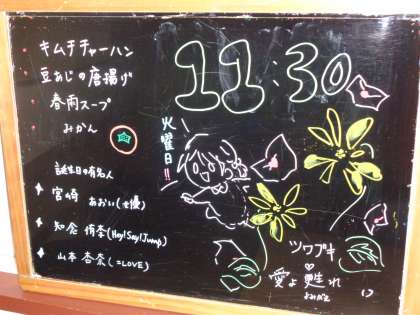 キムチチャーハン
豆あじの唐揚げ
春雨スープ
みかん
誕生日の有名人
宮﨑 あおい(女優)
知念 侑李(Hey!Say!Jump)
山本 杏奈(=LOVE)
11:30
火曜日!!
ツワブキ
愛よ甦れ
よみがえ